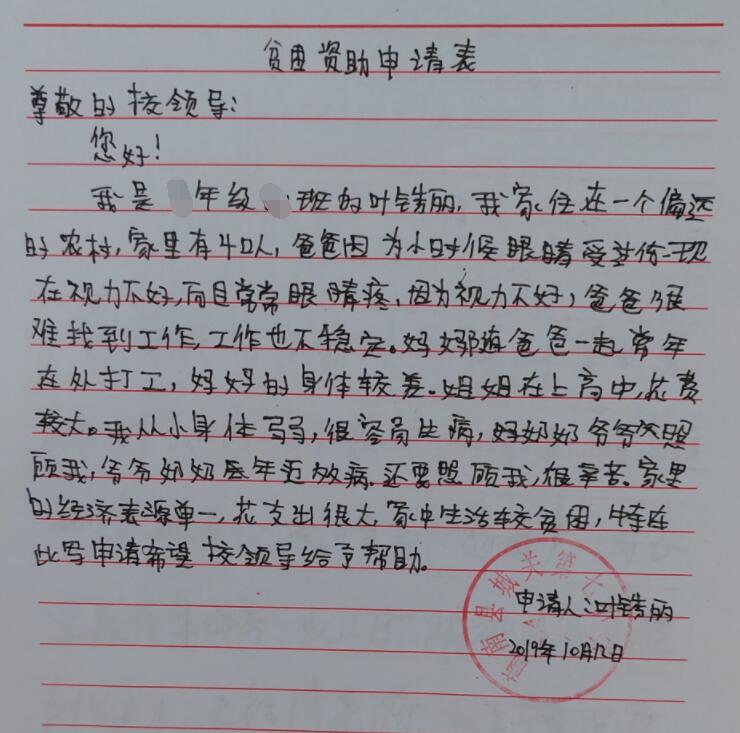 贫困资助申请表
尊敬的校领导:
您好!
我是 年级 班的叶锈丽,我家住在一个偏远
的农村,家里有4口人,爸爸因为小时候眼睛受过伤,现
在视力不好,而且常常眼睛疼,因为视力不好,爸爸很
难找到工作,工作也不稳定。妈妈随爸爸一起常年
在外打工,妈妈的身体较差。姐姐在上高中,花费
较大。我从小身体弱,很容易生病,奶奶爷爷照
顾我,爷爷奶奶年迈 病.还要照顾我,很辛苦。家里
的经济来源单一,花支出很大,家中生活较贫困,特在
此写申请希望校领导给予帮助。
申请人:叶锈丽
2019年10月12日
县城关第七